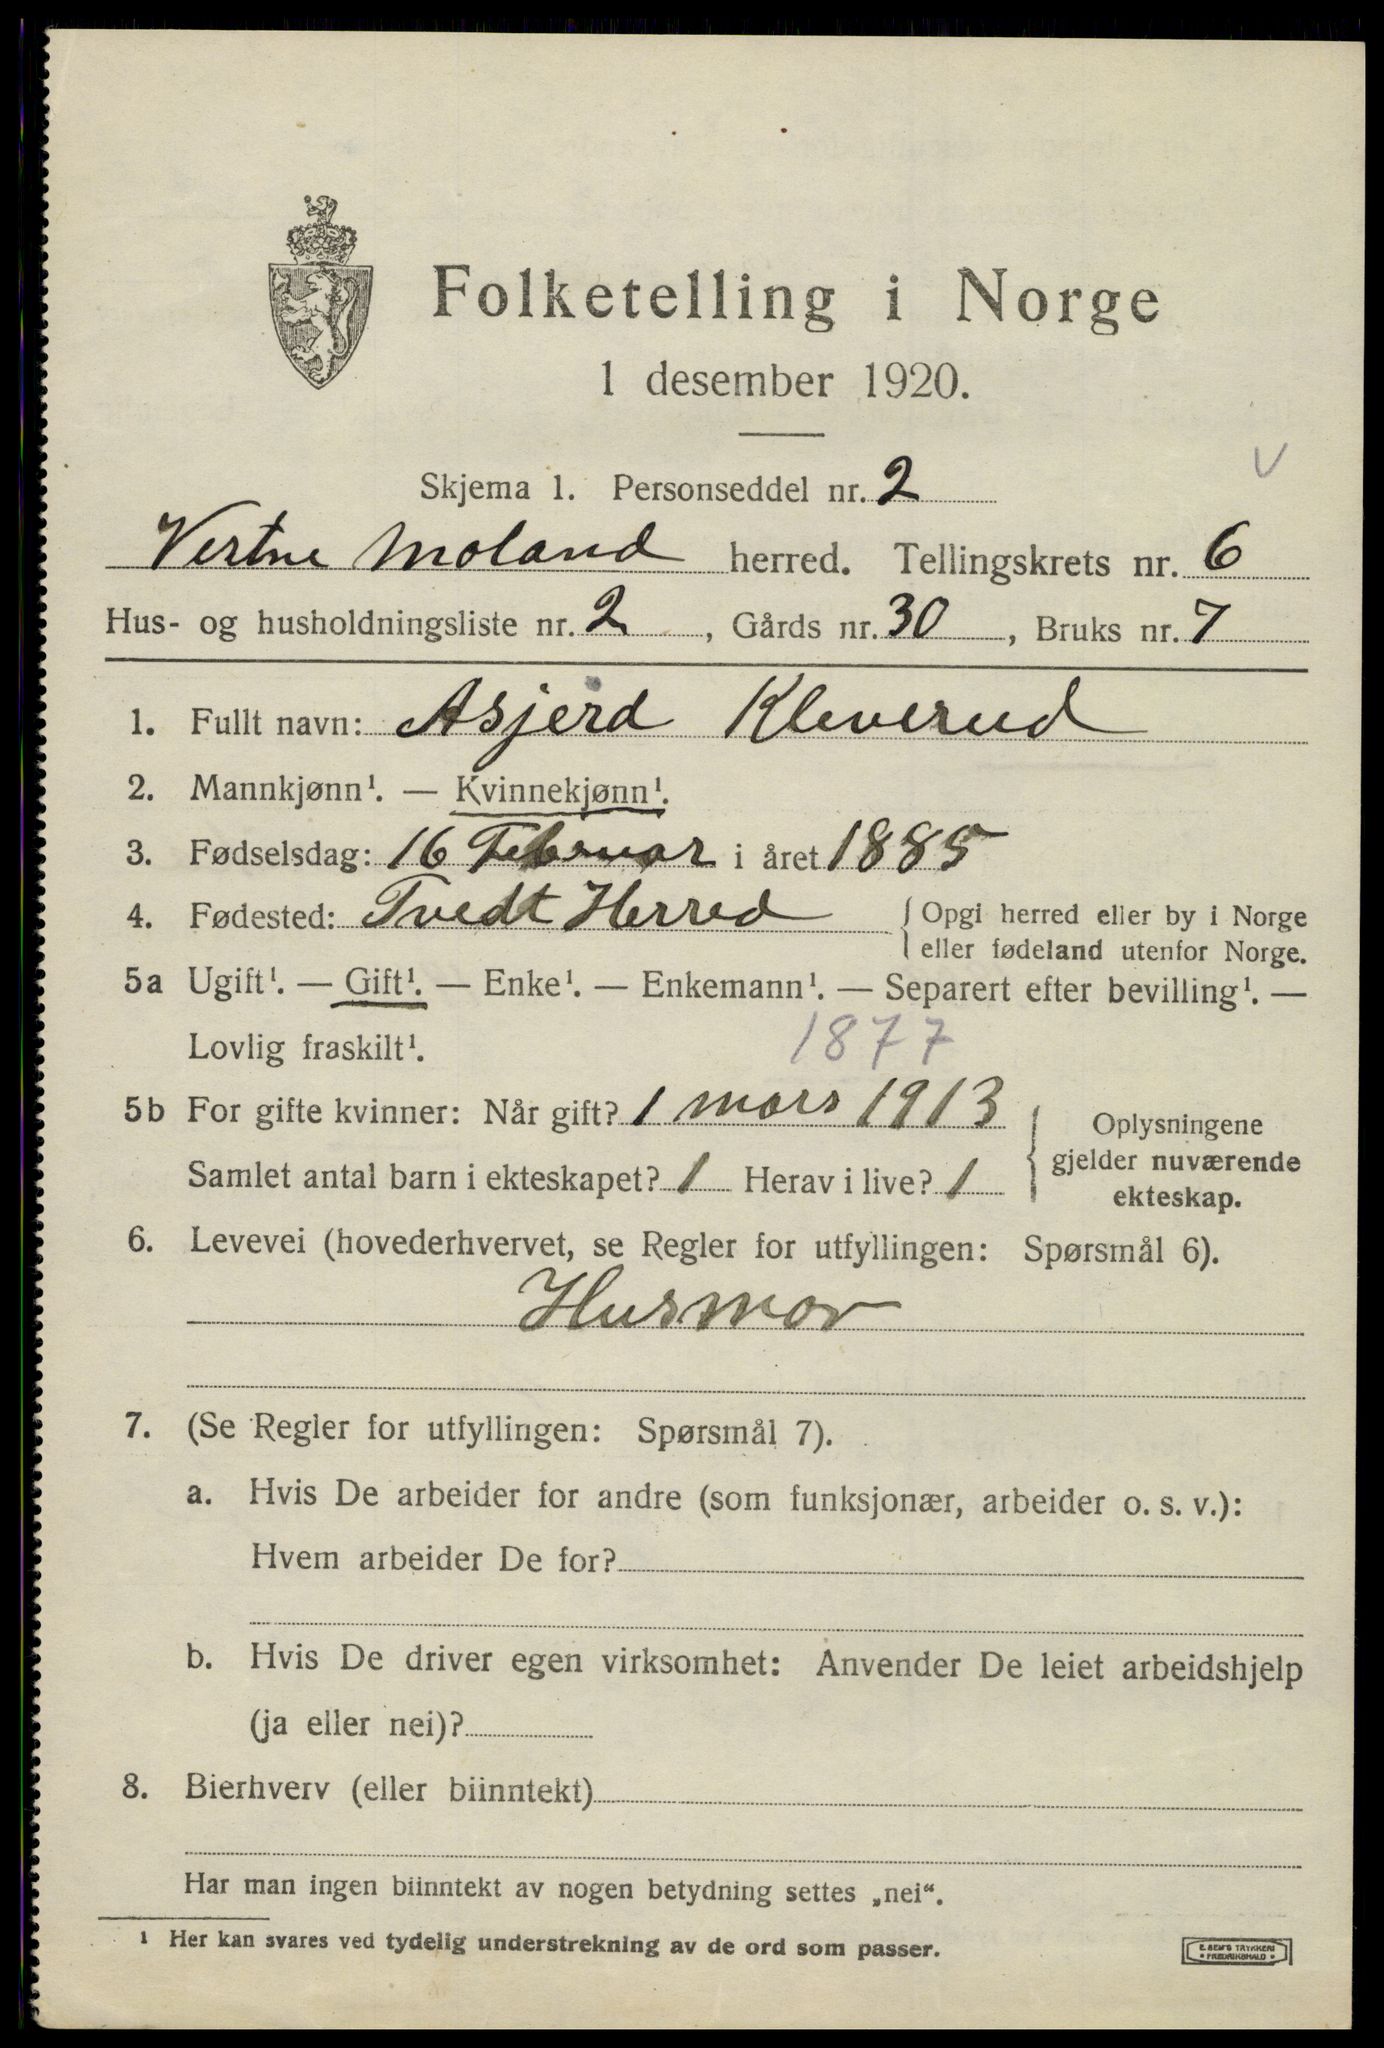 Folketelling i Norge
1 desember 1920.
Skjema 1. Personseddel nr. 2
v
Vestre Moland herred. Tellingskrets nr. 6
Hus- og husholdningsliste nr. 2, Gårds nr. 30, Bruks nr. 7
1. Fullt navn: Asjerd Kleverud
2. Mannkjønn¹. — Kvinnekjønn¹.
3. Fødselsdag: 16 Februar i året 1885
4. Fødested: Tvedt Herred { Opgi herred eller by i Norge
eller fødeland utenfor Norge.
5a Ugift¹. — Gift¹. — Enke¹. — Enkemann¹. — Separert efter bevilling¹. —
Lovlig fraskilt¹. 1877
5b For gifte kvinner: Når gift? 1 mars 1913
Samlet antal barn i ekteskapet? 1 Herav i live? 1
Oplysningene
gjelder nuværende
ekteskap.
6. Levevei (hovederhvervet, se Regler for utfyllingen: Spørsmål 6).
Husmor
7. (Se Regler for utfyllingen: Spørsmål 7).
a. Hvis De arbeider for andre (som funksjonær, arbeider o. s. v.):
Hvem arbeider De for?
b. Hvis De driver egen virksomhet: Anvender De leiet arbeidshjelp
(ja eller nei)?
8. Bierhverv (eller biinntekt)
Har man ingen biinntekt av nogen betydning settes „nei“.
¹ Her kan svares ved tydelig understrekning av de ord som passer.
E. SEM'S TRYKKERI
• FREDRIKSHALD •